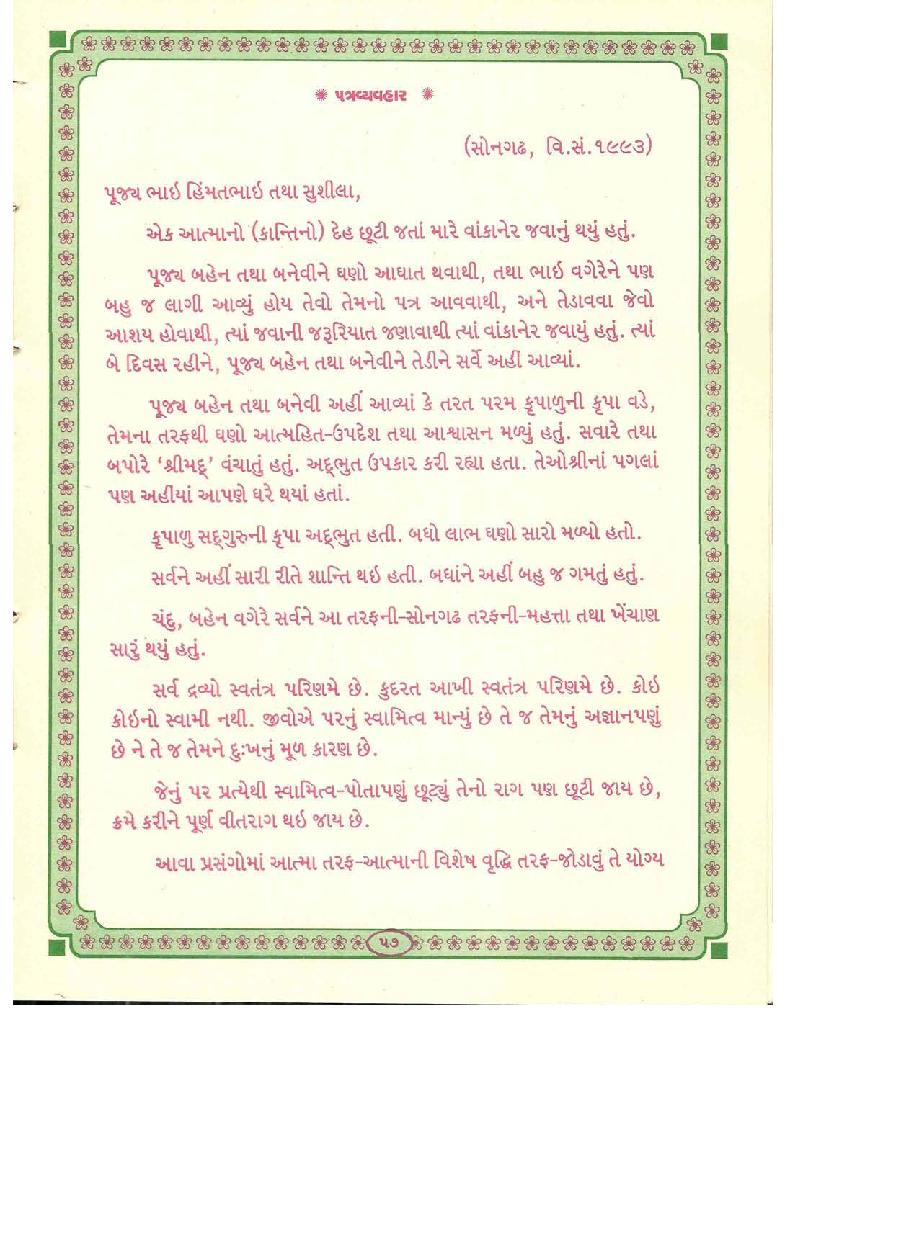 ✺ પત્રવ્યવહાર ✺
(સોનગઢ, વિ.સં.૧૯૯૩)
પૂજ્ય ભાઇ હિંમતભાઇ તથા સુશીલા,
એક આત્માનો (કાન્તિનો) દેહ છૂટી જતાં મારે વાંકાનેર જવાનું થયું હતું.
પૂજ્ય બહેન તથા બનેવીને ઘણો આઘાત થવાથી, તથા ભાઇ વગેરેને પણ
બહુ જ લાગી આવ્યું હોય તેવો તેમનો પત્ર આવવાથી, અને તેડાવવા જેવો
આશય હોવાથી, ત્યાં જવાની જરૂરિયાત જણાવાથી ત્યાં વાંકાનેર જવાયું હતું. ત્યાં
બે દિવસ રહીને, પૂજ્ય બહેન તથા બનેવીને તેડીને સર્વે અહીં આવ્યાં.
પૂજ્ય બહેન તથા બનેવી અહીં આવ્યાં કે તરત પરમ કૃપાળુની કૃપા વડે,
તેમના તરફથી ઘણો આત્મહિત-ઉપદેશ તથા આશ્વાસન મળ્યું હતું. સવારે તથા
બપોરે ‘શ્રીમદ્’ વંચાતું હતું. અદ્ભુત ઉપકાર કરી રહ્યા હતા. તેઓશ્રીનાં પગલાં
પણ અહીંયાં આપણે ઘરે થયાં હતાં.
કૃપાળુ સદ્ગુરુની કૃપા અદ્ભુત હતી. બધો લાભ ઘણો સારો મળ્યો હતો.
સર્વને અહીં સારી રીતે શાન્તિ થઇ હતી. બધાંને અહીં બહુ જ ગમતું હતું.
ચંદુ, બહેન વગેરે સર્વને આ તરફની-સોનગઢ તરફની-મહત્તા તથા ખેંચાણ
સારું થયું હતું.
સર્વ દ્રવ્યો સ્વતંત્ર પરિણમે છે. કુદરત આખી સ્વતંત્ર પરિણમે છે. કોઇ
કોઇનો સ્વામી નથી. જીવોએ પરનું સ્વામિત્વ માન્યું છે તે જ તેમનું અજ્ઞાનપણું
છે ને તે જ તેમને દુઃખનું મૂળ કારણ છે.
જેનું પર પ્રત્યેથી સ્વામિત્વ-પોતાપણું છૂટ્યું તેનો રાગ પણ છૂટી જાય છે,
ક્રમે કરીને પૂર્ણ વીતરાગ થઇ જાય છે.
આવા પ્રસંગોમાં આત્મા તરફ-આત્માની વિશેષ વૃદ્ધિ તરફ-જોડાવું તે યોગ્ય
૫૭